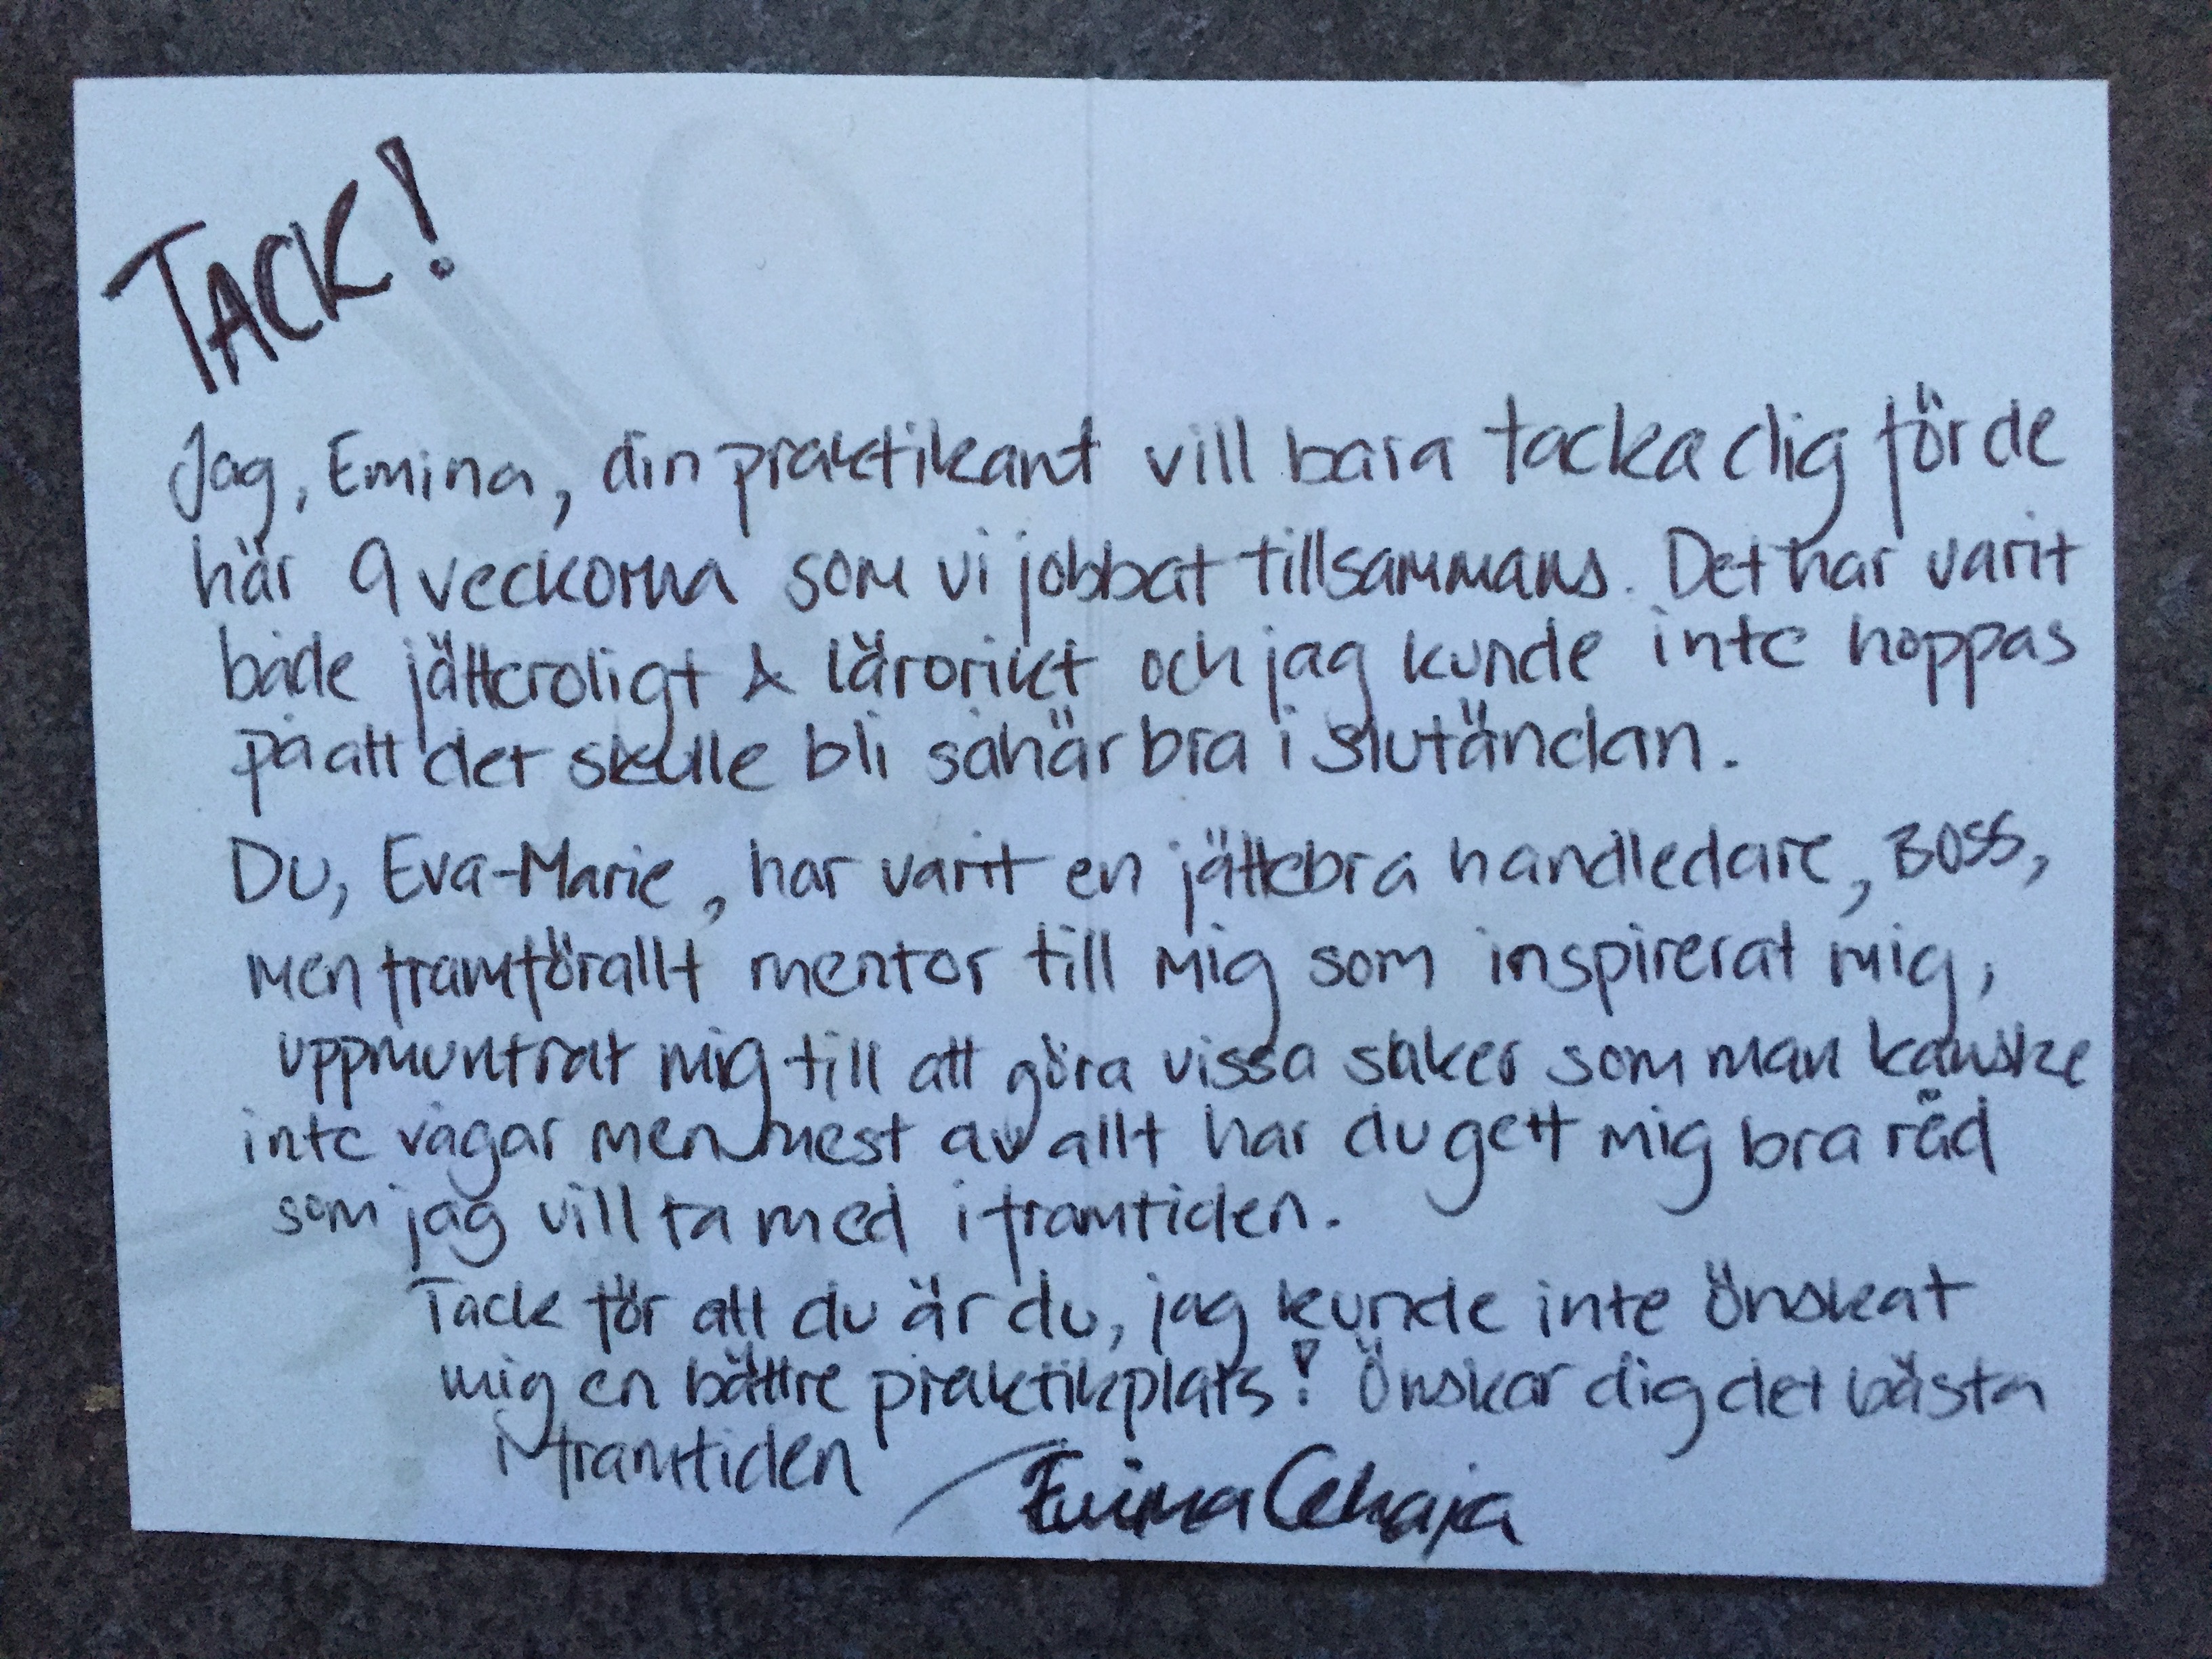 TACK!
Jag, Emina, din praktikant vill bara tacka dig för de
här 9 veckorna som vi jobbat tillsammans. Det har varit
både jätteroligt & lärorikt och jag kunde inte hoppas
på att det skulle bli såhär bra i slutändan.
Du, Eva-Marie, har varit en jättebra handledare, BOSS,
men framförallt mentor till mig som inspirerat mig,
uppmuntrat mig till att göra vissa saker som man kanske
inte vågar men mest av allt har du gett mig bra råd
som jag vill ta med i framtiden.
Tack för att du är du, jag kunde inte önskat
mig en bättre praktikplats! Önskar dig det bästa
i framtiden
Emina Cehaja